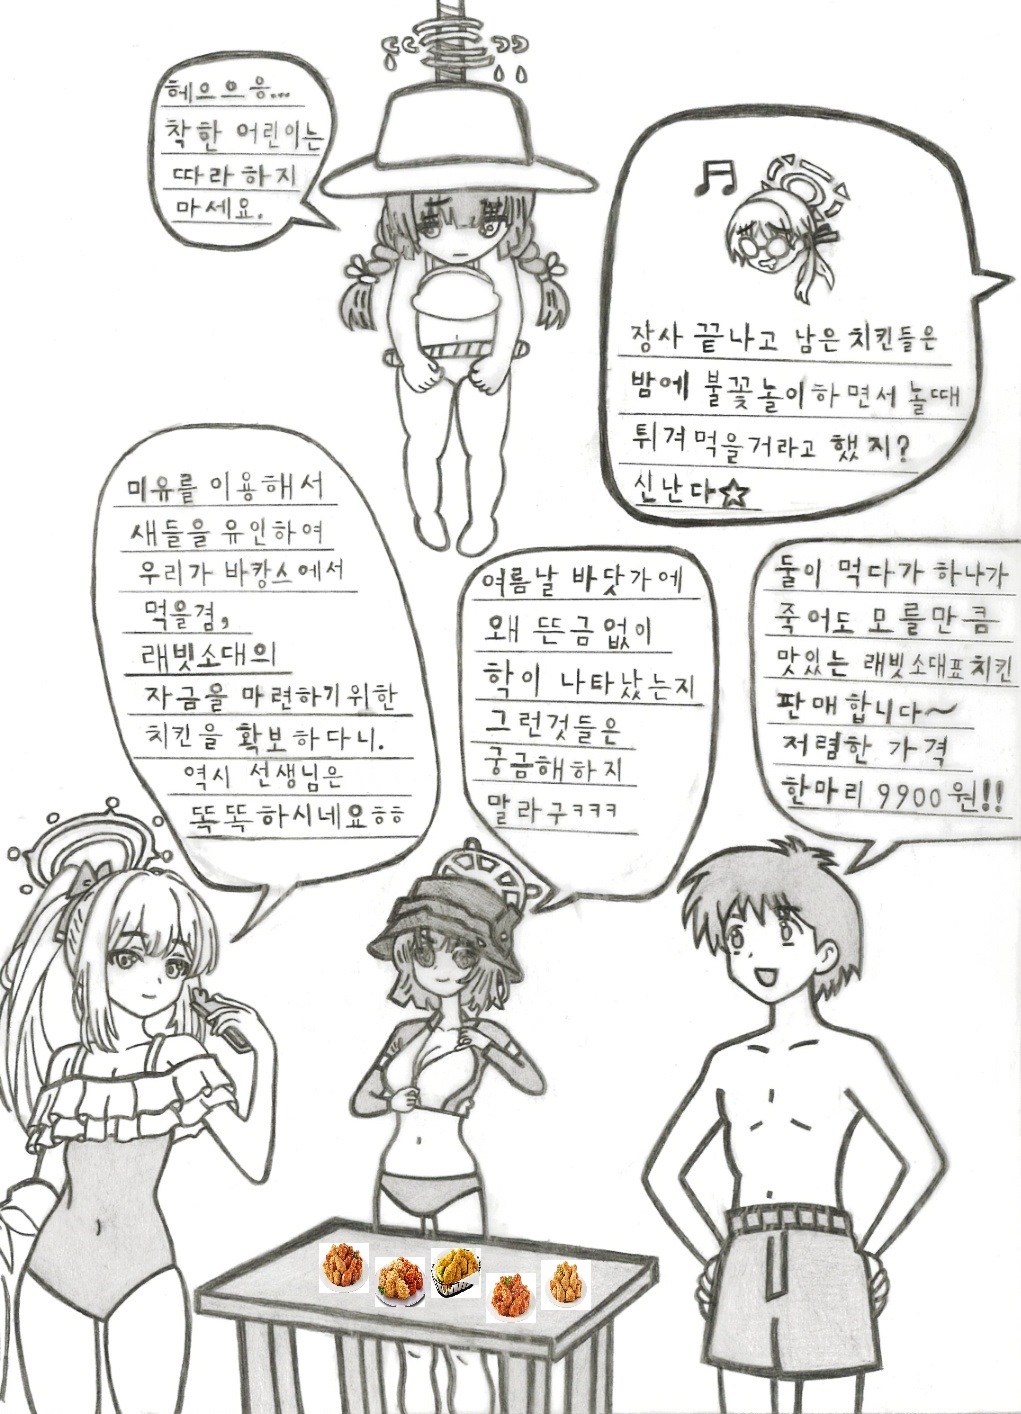 헤으으응...
착한 어린이는
따라하지
마세요.
장사 끝나고 남은 치킨들은
밤에 불꽃놀이하면서 놀때
튀겨먹을거라고 했지?
신난다☆
미유를 이용해서
새들을 유인하여
우리가 바캉스에서
먹을겸,
래빗소대의
자금을 마련하기위한
치킨을 확보하다니.
역시 선생님은
똑똑하시네요ㅎㅎ
여름날 바닷가에
왜 뜬금없이
학이 나타났는지
그런것들은
궁금해하지
말라구ㅋㅋㅋ
둘이 먹다가 하나가
죽어도 모를만큼
맛있는 래빗소대표치킨
판매합니다~
저렴한 가격
한마리 9900원!!